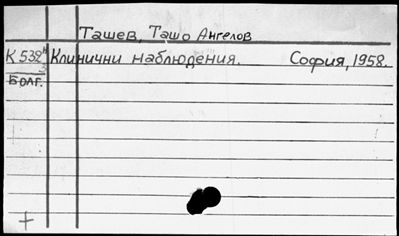 Ташев, Ташо Ангелов
К 532 Клинични наблюдения. София, 1958.
Болг.